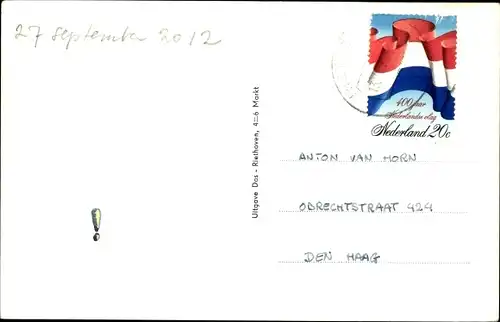 27 september 2012
400 jaar
Nederlandse vlag
Nederland 20c
Uitgave Das - Riethoven, 4::6 Markt
ANTON VAN HORN
OBRECHTSTRAAT 424
DEN HAAG
!